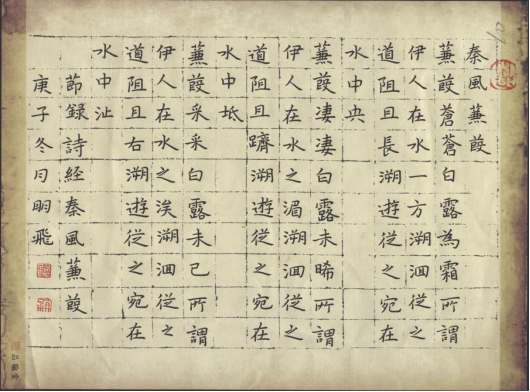 秦風蒹葭
蒹葭蒼蒼白露為霜所謂
伊人在水一方溯洄從之
道阻且長溯遊從之宛在
水中央
蒹葭凄凄白露未晞所謂
伊人在水之湄溯洄從之
道阻且躋溯遊從之宛在
水中坻
蒹葭采采白露未已所謂
伊人在水之涘溯洄從之
道阻且右溯遊從之宛在
水中沚
節録詩経秦風蒹葭
庚子冬月明飛